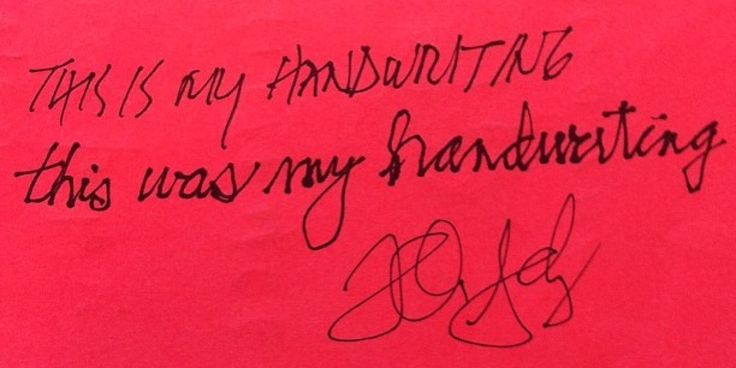 THIS IS MY HANDWRITING
this was my handwriting